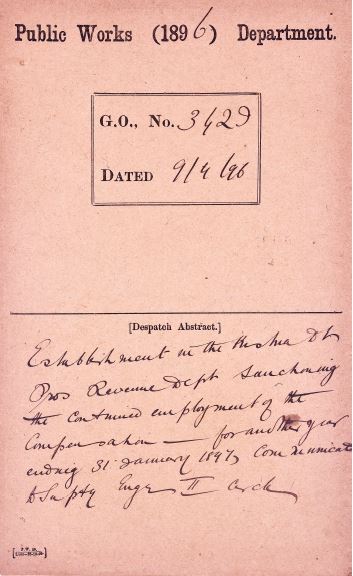 Public Works (1896) Department.
G.O., No. 3429
DATED 9/4/96
[Despatch Abstract.]
Establishment in the Kistna Dt
Pros Revenue Dept Sanctioning
the continued employment of the
Compensation — for another year
ending 31 January 1897, Communicated
to Supty Engr II Circle